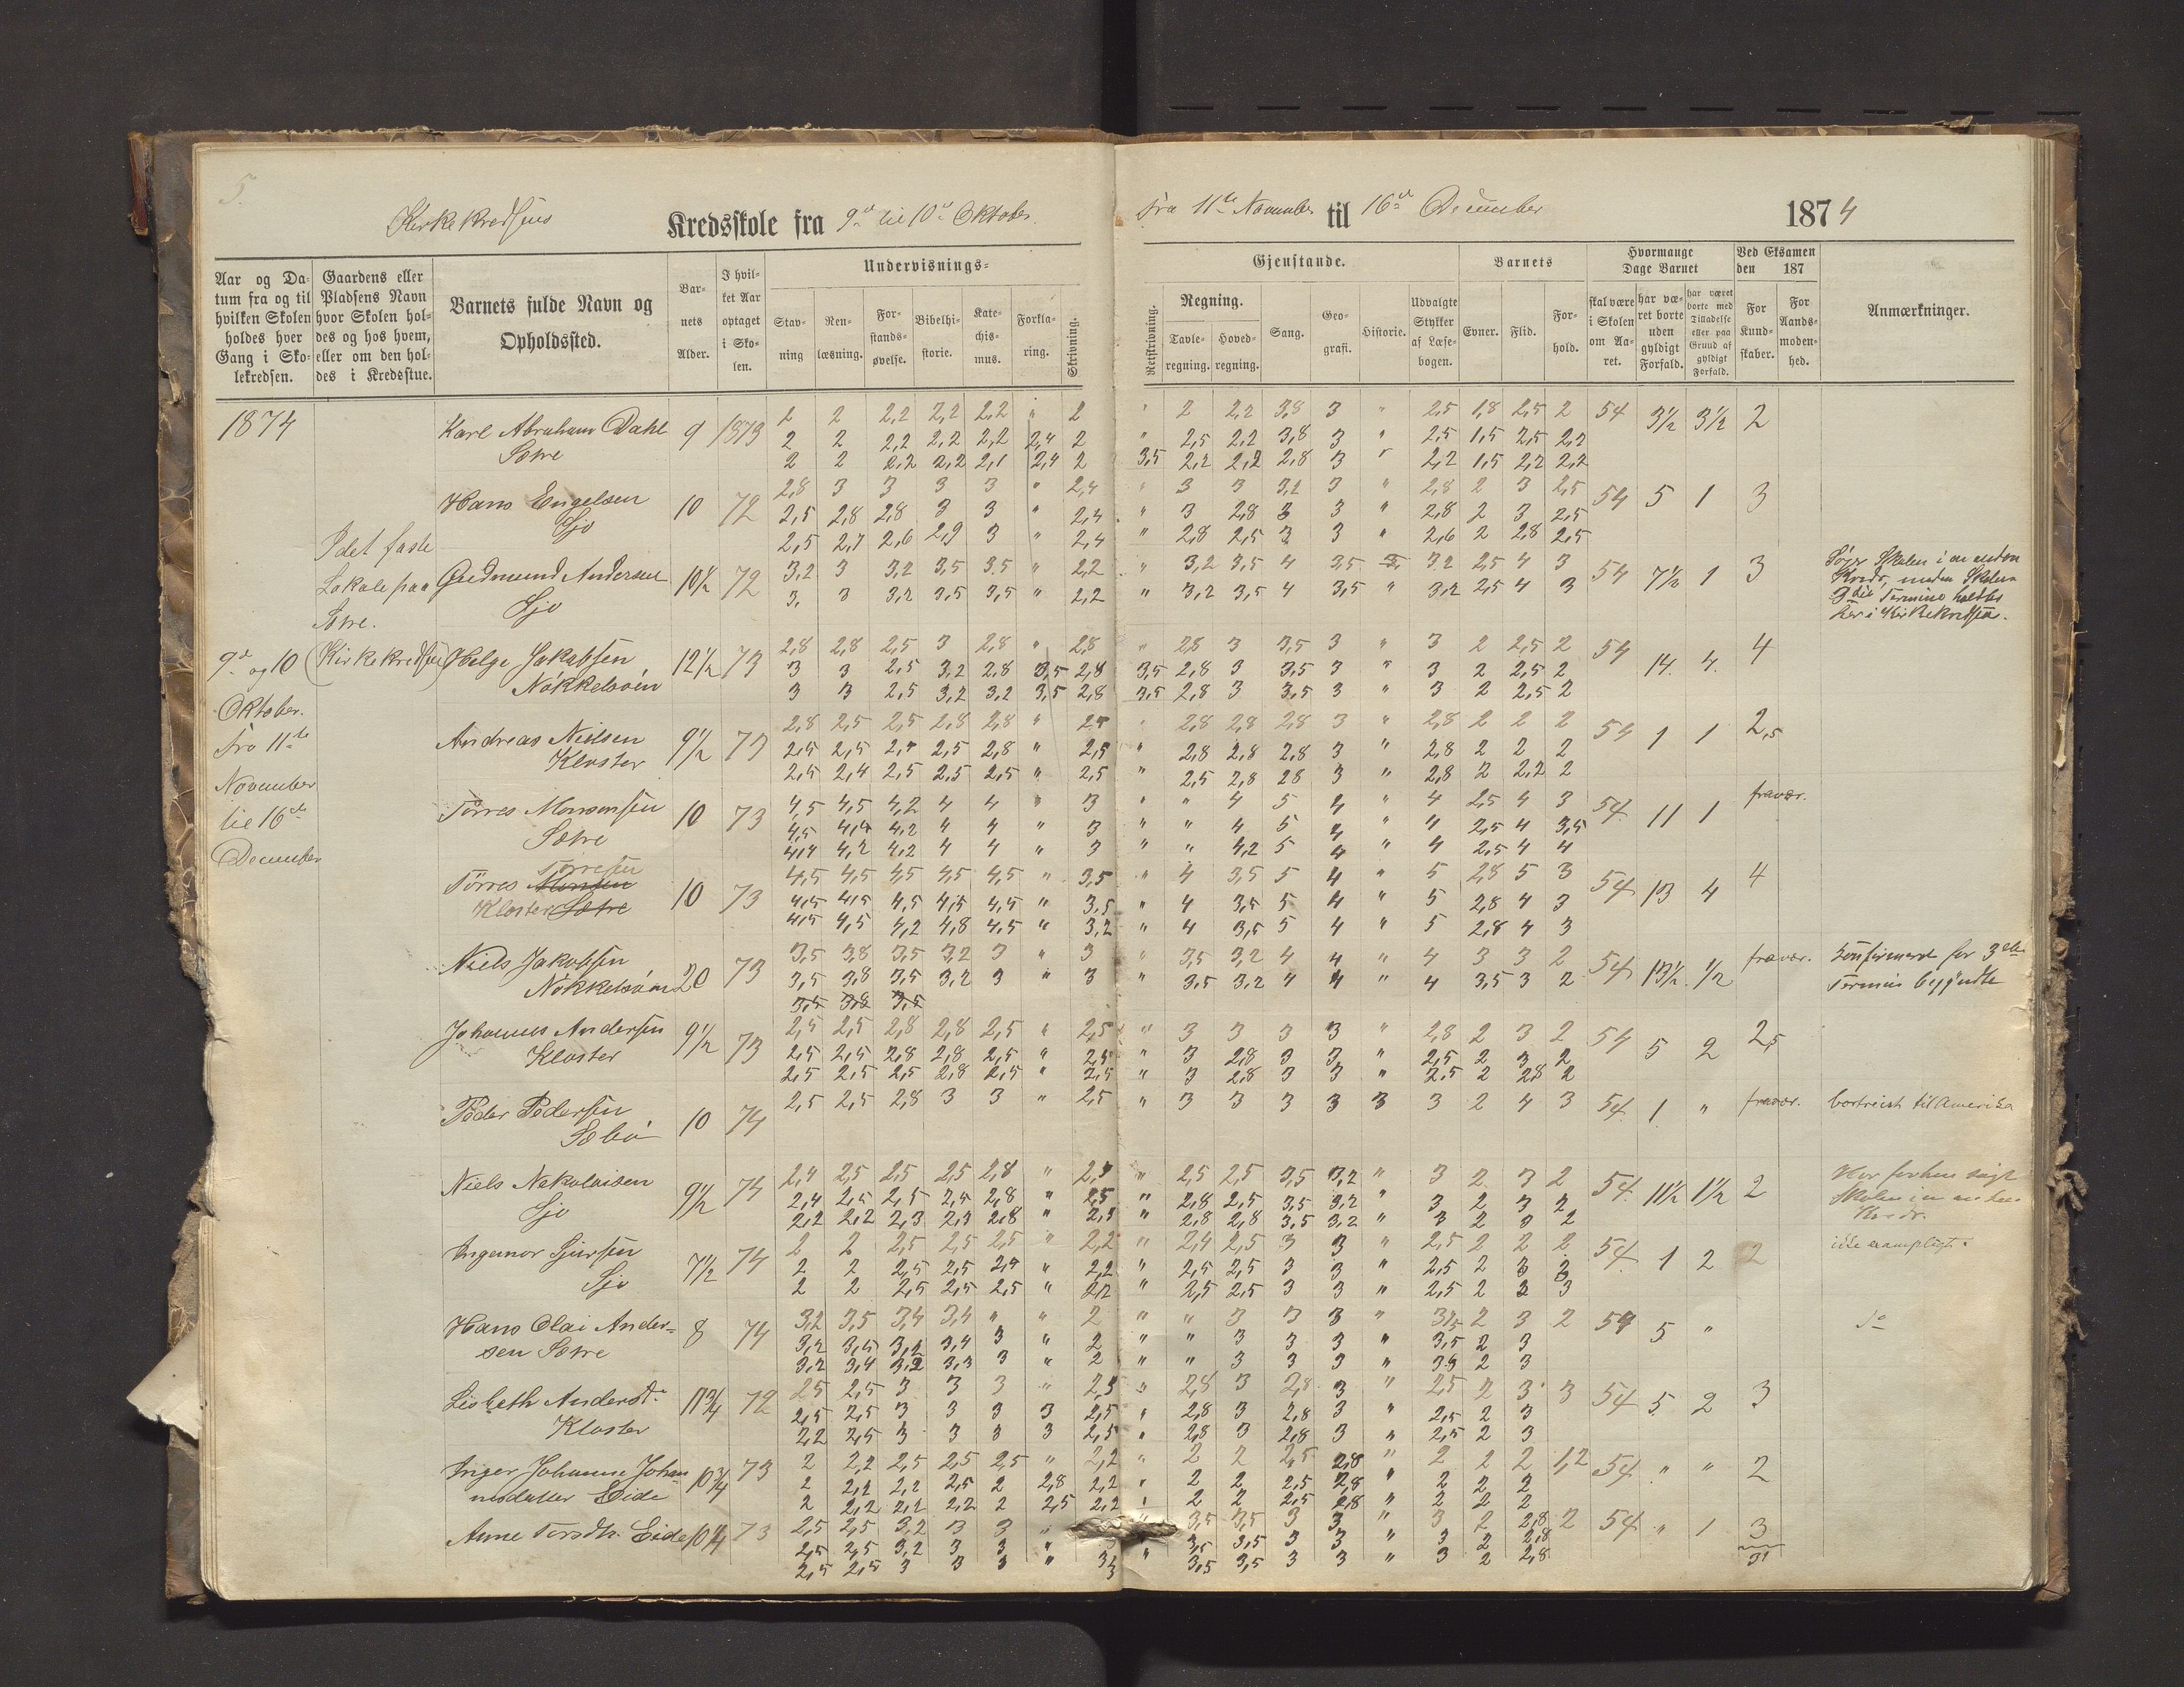 5.
Kirkekredsens Kredsskole fra 9de til 10de Oktober. fra 11te November til 16de December 1874
Aar og Datum fra og til hvilken Skolen holdes hver Gang i Skolekredsen.
Gaardens eller Pladsens Navn hvor Skolen holdes og hos hvem, eller om den holdes i Kredsstue.
Barnets fulde Navn og Opholdssted.
Barnets Alder.
I hvilket Aar optaget i Skolen.
Undervisnings-
Stavning
Renlæsning.
Forstandsøvelse.
Bibelhistorie.
Katechismus.
Forklaring.
Skrivning.
Gjenstande.
Retskrivning.
Regning.
Tavleregning.
Hovedregning.
Sang.
Geografi.
Historie.
Udvalgte Stykker af Læsebogen.
Barnets
Evner.
Flid.
Forhold.
Hvormange Dage Barnet
skal være i Skolen om Aaret.
har været borte uden gyldigt Forfald.
har været borte med Tilladelse eller paa Grund af gyldigt Forfald.
Ved Eksamen den 187
For Kundskaber.
For Aandsmodenhed.
Anmærkninger.
1874
9de og 10
Oktober.
Fra 11te
November
til 16de
December
I det faste
Lokale paa
Sætre.
(Kirkekredsen)
Karl Abraham Dahl 9 1873 2 2 2,2 2,2 2,2 " 2 " 2 2,2 3,8 3 " 2,5 1,8 2,5 2 54 3½ 3½ 2
Sætre 2 2 2,2 2,2 2,2 2,4 2 " 2,5 2,2 3,8 3 " 2,5 1,5 2,5 2,2
2 2 2,2 2,2 2,1 2,4 2 3,5 2,2 2,2 2,8 3 " 2,2 1,5 2,2 2,2
Hans Engelsen 10 72 2,8 3 3 3 3 " 2,4 " 3 3 3,2 3 " 2,8 2 3 2,5 54 5 1 3
Sjo 2,5 2,8 2,8 3 3 " 2,4 " 3 2,8 3 3 " 2,8 2 3 2,5
2,5 2,7 2,6 2,9 3 " 2,4 " 2,8 2,5 3 3 " 2,6 2 2,8 2,5
Gudmund Andersen 10½ 72 3,2 3 3,2 3,5 3,5 " 2,2 " 3,2 3,5 4 3,5 3,2 2,5 4 3 54 7½ 1 3
Sjo 3, 3 3,2 3,5 3,5 " 2,2 " 3,2 3,5 4 3,5 " 3,2 2,5 4 3
Søger Skolen i en anden
Kreds, medens Skolens
3die Termine holdtes
her i Kirkekredsen.
Helge Jakobsen 12½ 73 2,8 2,8 2,5 3 2,8 " 2,8 " 2,8 3 3,5 3 " 3 2 2,5 2 54 14. 4. 4
Nökkelsöen 3 3 2,5 3,2 2,8 3,5 2,8 3,5 2,8 3 3,5 3 " 3 2 2,5 2
3 3 2,5 3,2 3,2 3,5 2,8 3,5 2,8 3 3,5 3 " 3 2 2,5 2
Andreas Nielsen 9½ 73 2,8 2,5 2,5 2,8 2,8 " 2,5 " 2,8 2,8 2,8 3 " 2,8 2 2 2 54 1 1 2,5
Kloster 2,5 2,5 2,5 2,5 2,8 " 2,5 " 2,8 2,8 2,8 3 " 2,8 2 2 2
2,5 2,4 2,5 2,5 2,5 " 2,5 " 2,5 2,8 28 3 " 2,8 2 2,2 2
Törres Monsensen 10 73 4,5 4,5 4,2 4 4 " 3 " " 4 5 4 " 4 2,5 4 3 54. 11 1 fravær.
Sætre 4,5 4,4 4,2 4 4 " 3 " " 4 5 4 " 4 2,5 4 3,5
4,4 4,2 4,2 4 4 " 3 " " 4,2 5 4 " 4 2,5 4 4
Törres Monsen Törresen 10 73 4,5 4,5 4,5 4,5 4,5 " 3,5 " 4 3,5 5 4 " 5 2,8 5 3 54 13 4 4
Kloster Sætre 4,5 4,5 4,5 4,5 4,5 " 3,5 " 4 3,5 5 4 " 5 2,8 4 3
4,5 4,5 4,2 4,8 4,5 " 3,2 " 4 3,5 5 4 " 5 2,8 4 3
Niels Jakobsen 20 73 3,5 3,8 3,5 3,2 3 " 3 " 3,5 3,2 4 4 " 4 3 3 2 54 13½ ½ fravær. Konfirmeret før 3die
Nökkelsöen 3,5 3,8 3,5 3,2 3 " 3 " 3,5 3,2 4 4 " 4 3,5 3 2 Termin begyndte
3,5 3,8 3,5
Johannes Andersen 9½ 73 2,5 2,5 2,8 2,8 2,5 " 2,5 " 3 3 3 3 " 2,8 2 3 2 54 5 2 2,5
Kloster 2,5 2,5 2,8 2,8 2,5 " 2,5 " 3 2,8 3 3 " 2,5 2 3 2
2,5 2,5 2,5 2,8 2,5 " 2,5 " 3 2,8 3 3 " 2,5 2 2,8 2
Peder Pedersen 10 74 2,5 2,5 2,8 3 3 " 2,5 " 3 3 3 3 3 3 2 4 3 54. 1 " fravær. bortreist til Amerika
Sæbö
Niels Nekolaisen 9½ 74 2,4 2,5 2,5 2,5 2,8 " 2,5 " 2,5 2,5 3,5 3,2 " 3 2 3 2 54. 11½ 1½ 2
Sjo 2,4 2,5 2,5 2,5 2,8 " 2,5 " 2,8 2,5 3,5 3,2 " 3 2 3 2
2,2 2,2 2,3 2,3 2,8 " 2,5 " 2,8 2,8 3,5 3,2 " 3 2 3 2
Har forhen søgt
Skolen i en anden
Kreds.
Ingemor Sjursen 7½ 74 2 2 2,5 2,5 2,5 " 2,2 " 2,4 2,5 3 3 " 2,5 2 2 2 54. 1 2 2
Sjo 2 2 2,5 2,5 2,5 " 2,2 " 2,5 2,5 3 3 " 2,5 2 3 3
2 2 2,5 2,5 2,5 " 2,2 " 2,5 2,5 3 3 " 2,5 2 3 3
Hans Olai Ander= 8 74 3,2 3,5 3,4 3,4 " " 2 " " 3 3 3 " 3,5 2 3 2 54 5 "
sen Sætre 3,2 3,5 3,2 3,4 3 " 2 " " 3 3 3 " 3,5 2 3
3,2 3,4 3,2 3,3 3 " 2 " " 3 3 3 " 3,5 2 3
Lisbeth Andersdr. 11¾ 72 2,5 2,5 3 3 3 " 2,5 " 2,8 3 2,8 3 " 2,5 2 3 3 54 5 2 3
Kloster 2,5 2,5 3 3 3 3 2,5 " 2,8 3 2,8 3 " 2,5 2 3
2,2 2,5 3 3 3 3 2,5 " 2,8 3 2,8 3 " 2,5 2 3
Inger Johanne Johan 10¾ 73 2 2,2 2,5 2,5 2,5 " 2,2 " 2 2 2,5 2,8 " 2 2 2 1,2 54 " " 2
nesdatter Eide 2 2,2 2,2 2,5 2 2,8 2,2 " 2 2 2,5 2,8 " 2 2 2
2 2,2 2,2 2,2 2 2,5 2,2 " 2 2 2,5 2,8 " 2 2 2
Anne Torsdtr. Eide 10¼ 73 2,5 2,5 3,2 3 3 " 3,5 3,5 3 3 " 3 2 2,8 2 54 " 1 3
2,5 2,5 3,2 3 3 " 3,5 3,5 3 3 " 3 2 2,8
2,5 2,5 3 3 3 " 3 " 3,5 3,5 3 3 " 3 2 2,8